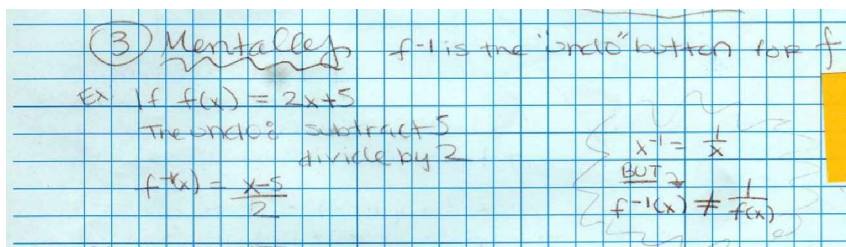 ③ Mentally f⁻¹ is the "undo" button for f
Ex If f(x) = 2x+5
The undo: subtract 5
divide by 2
f⁻¹(x) = x-5/2
x⁻¹ = 1/x
BUT
f⁻¹(x) ≠ 1/f(x)